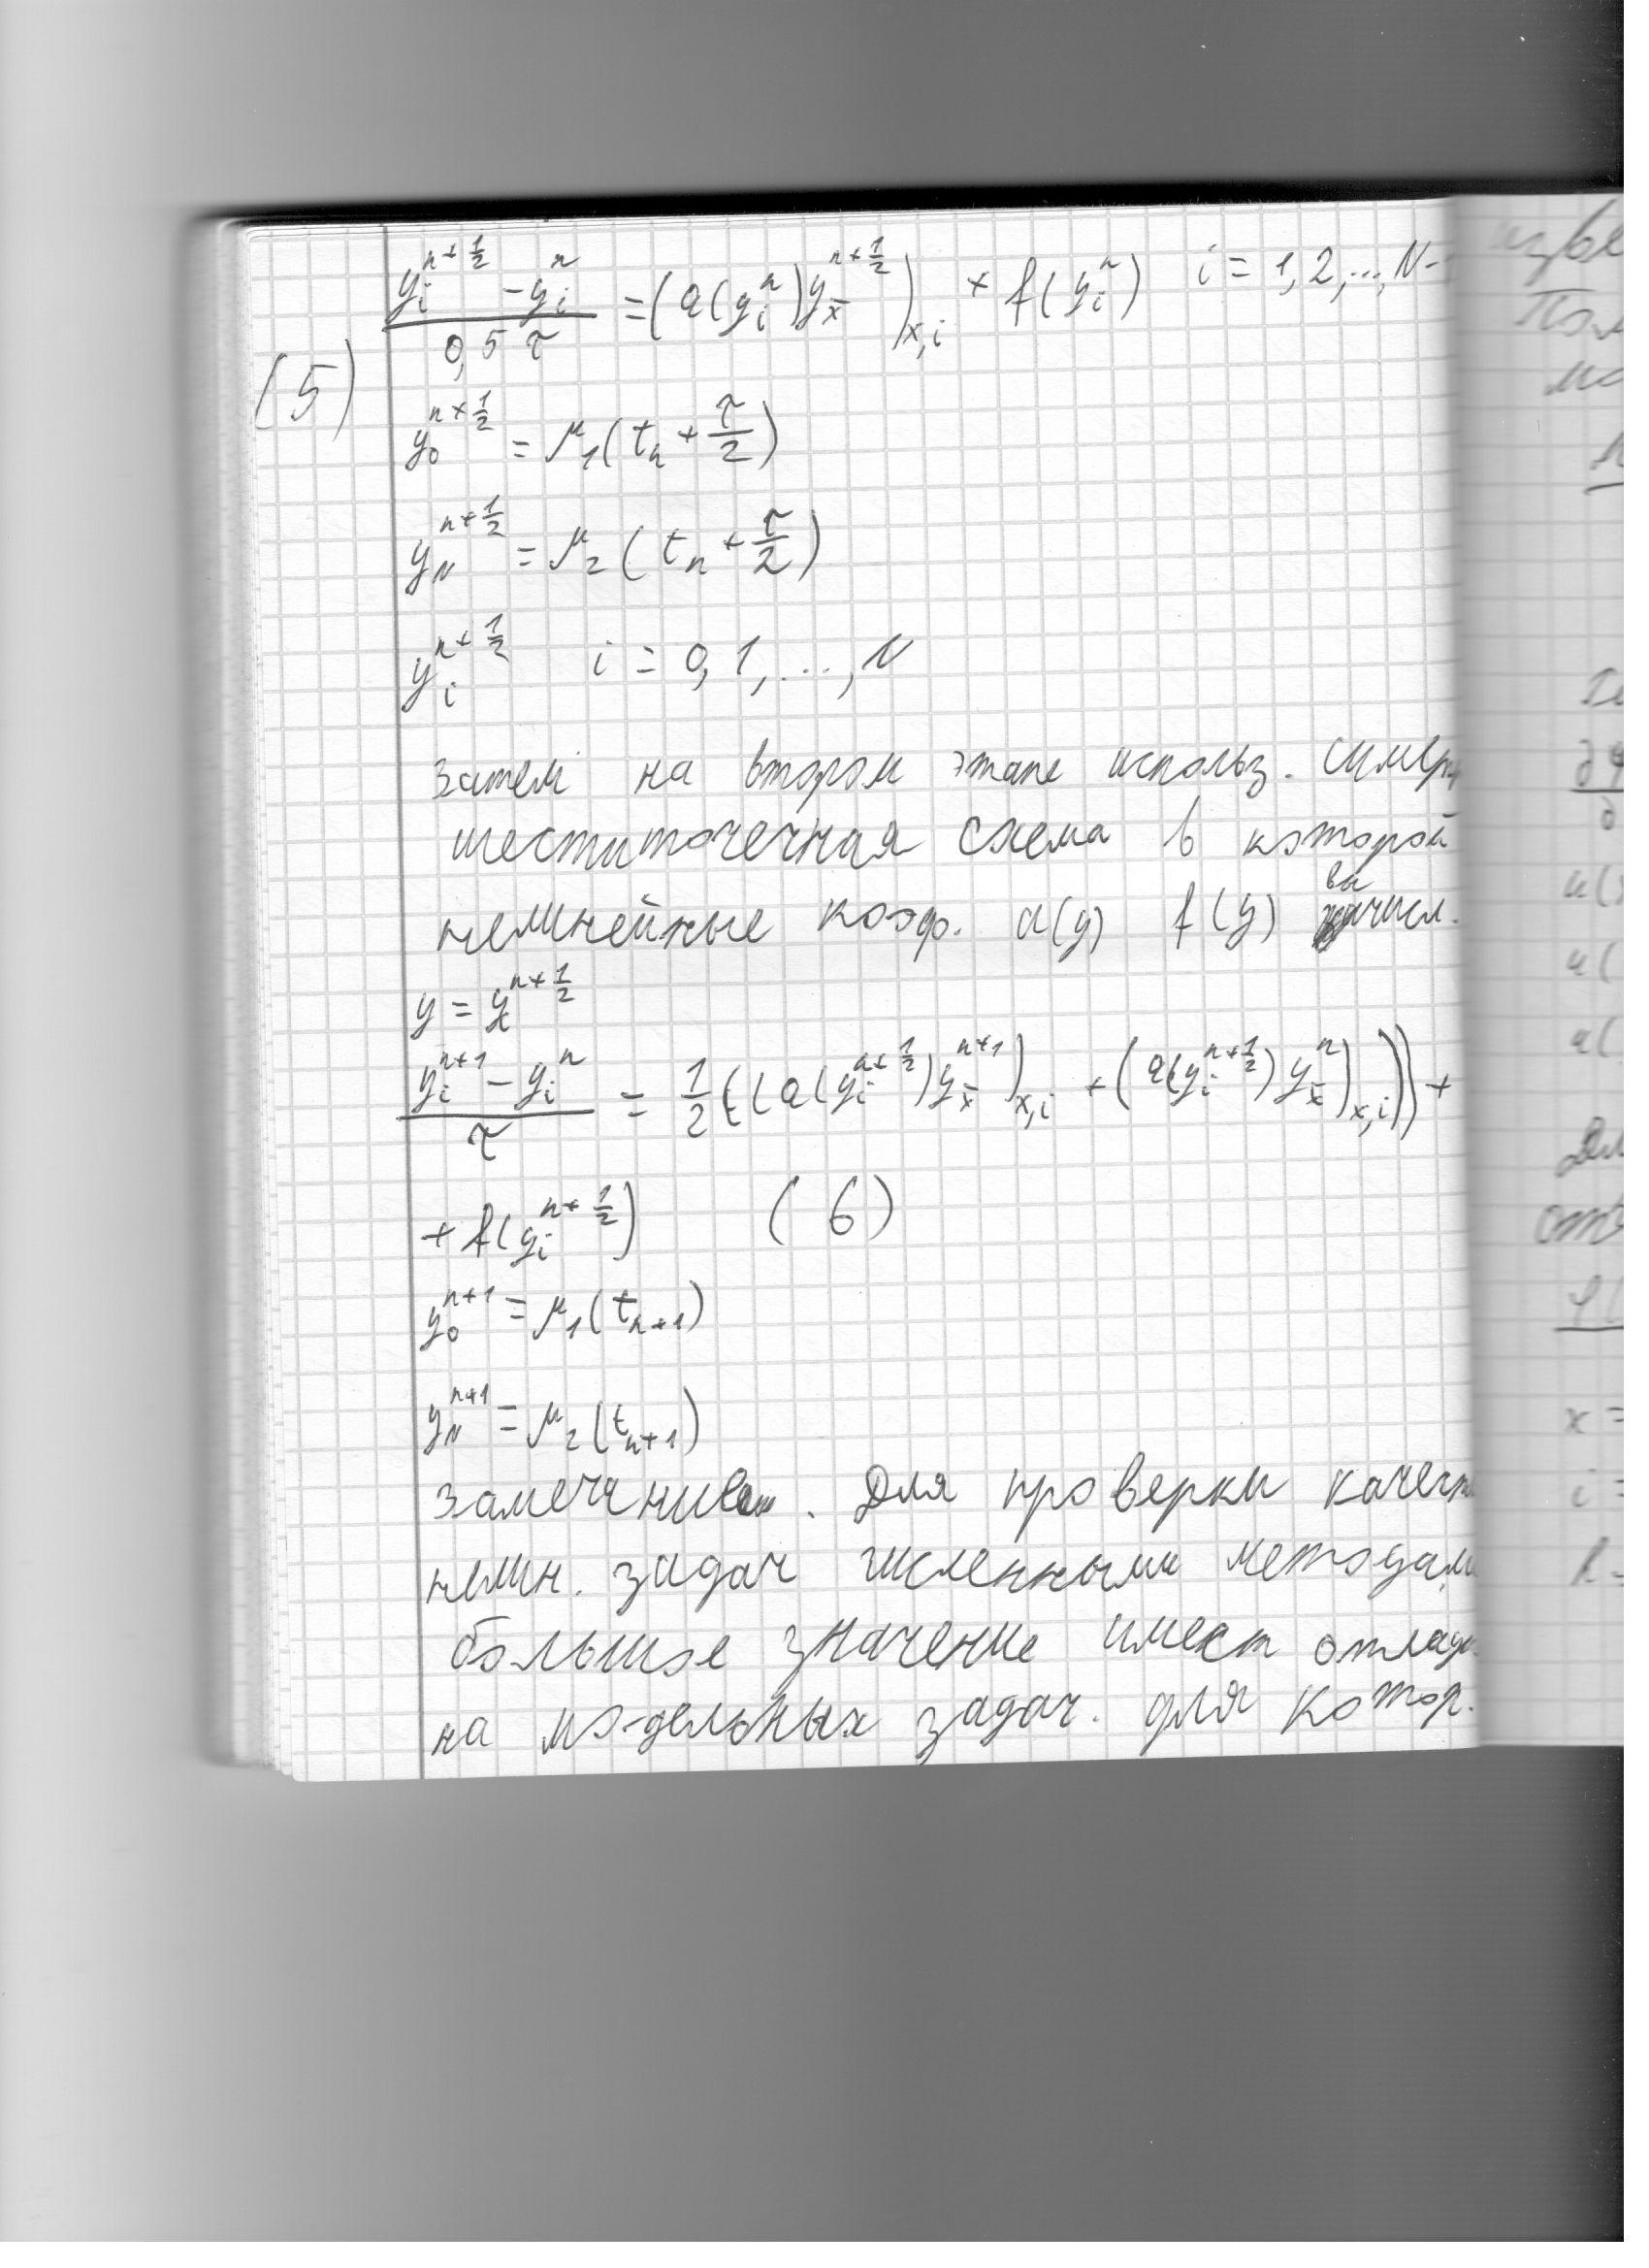 (y_i^{n+1/2} - y_i^n) / (0,5 τ) = (a(y_i^n) y_{x̄}^{n+1/2})_{x,i} + f(y_i^n)   i = 1,2,..., N-
(5)
y_0^{n+1/2} = μ_1(t_n + τ/2)
y_N^{n+1/2} = μ_2(t_n + τ/2)
y_i^{n+1/2}   i = 0,1,...,N
затем на втором этапе использ.
шеститочечная схема в которой
нелинейные коэф. a(y) f(y) вычисл.
y = y^{n+1/2}
(y_i^{n+1} - y_i^n) / τ = 1/2 ((a(y_i^{n+1/2}) y_{x̄}^{n+1})_{x,i} + (a(y_i^{n+1/2}) y_{x̄}^n)_{x,i})) +
+ f(y_i^{n+1/2})   (6)
y_0^{n+1} = μ_1(t_{n+1})
y_N^{n+1} = μ_2(t_{n+1})
Для проверки качест
нелин. задач численными методами
большое значение имеет отлад
на модельных задач. для котор.